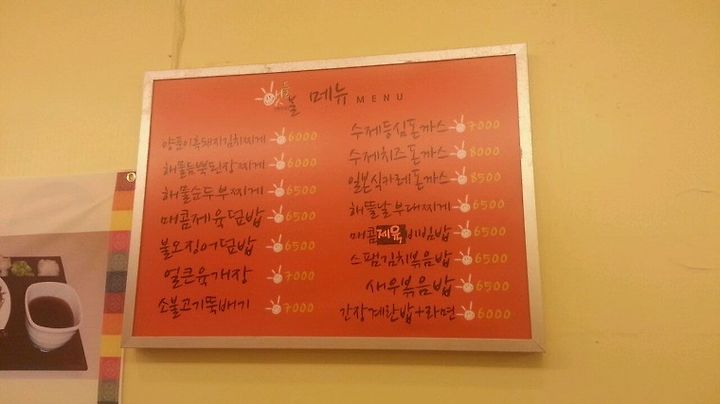 메뉴 MENU
양푼이흑돼지김치찌개 6000
해물듬뿍된장찌개 6000
해물순두부찌개 6500
매콤제육덮밥 6500
불오징어덮밥 6500
얼큰육개장 7000
소불고기뚝배기 7000
수제등심돈까스 7000
수제치즈돈까스 8000
일본식카레돈까스 8500
해뜰날부대찌개 6500
매콤제육비빔밥 6500
스팸김치볶음밥 6500
새우볶음밥 6500
간장계란밥+라면 6000